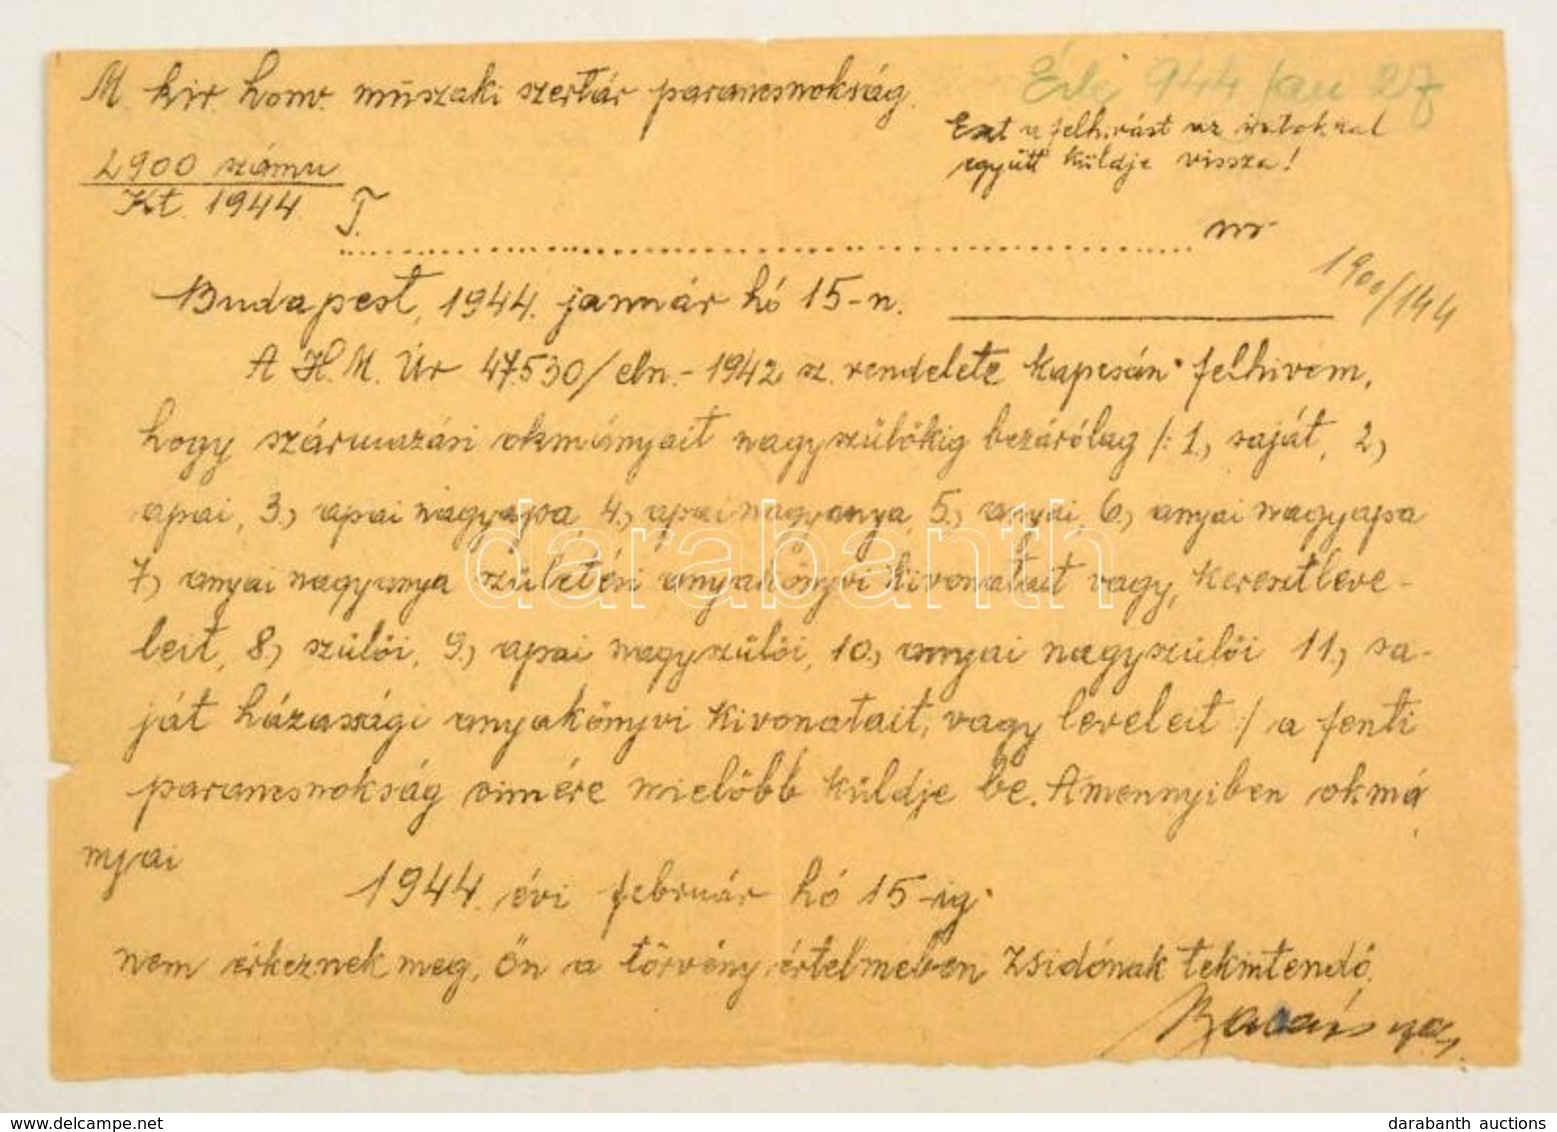 M. kir. honv. műszaki szertár parancsnokság.
944 jan 27
Ezt a felhívást az iratokkal
együtt küldje vissza!
2900 számu
Kt. 1944
T.
........................................ úr
Budapest, 1944. január hó 15-n.
1900/144
A H. M. Úr 47530/eln.-1942 sz. rendelete kapcsán felhivom,
hogy származási okmányait nagyszülőkig bezárólag /: 1., saját, 2.,
apai, 3., apai nagyapa, 4., apai nagyanya, 5., anyai, 6., anyai nagyapa
7., anyai nagyanya születési anyakönyvi kivonatait vagy, keresztleve-
leit, 8., szülői, 9., apai nagyszülői, 10., anyai nagyszülői 11., sa-
ját házassági anyakönyvi kivonatait, vagy leveleit :/ a fenti
parancsnokság cimére mielőbb küldje be. Amennyiben okmá
nyai
1944. évi február hó 15-ig
nem érkeznek meg, Ön a törvény értelmében zsidónak tekintendő.
darabanth
darabanth auctions
delcampe.net